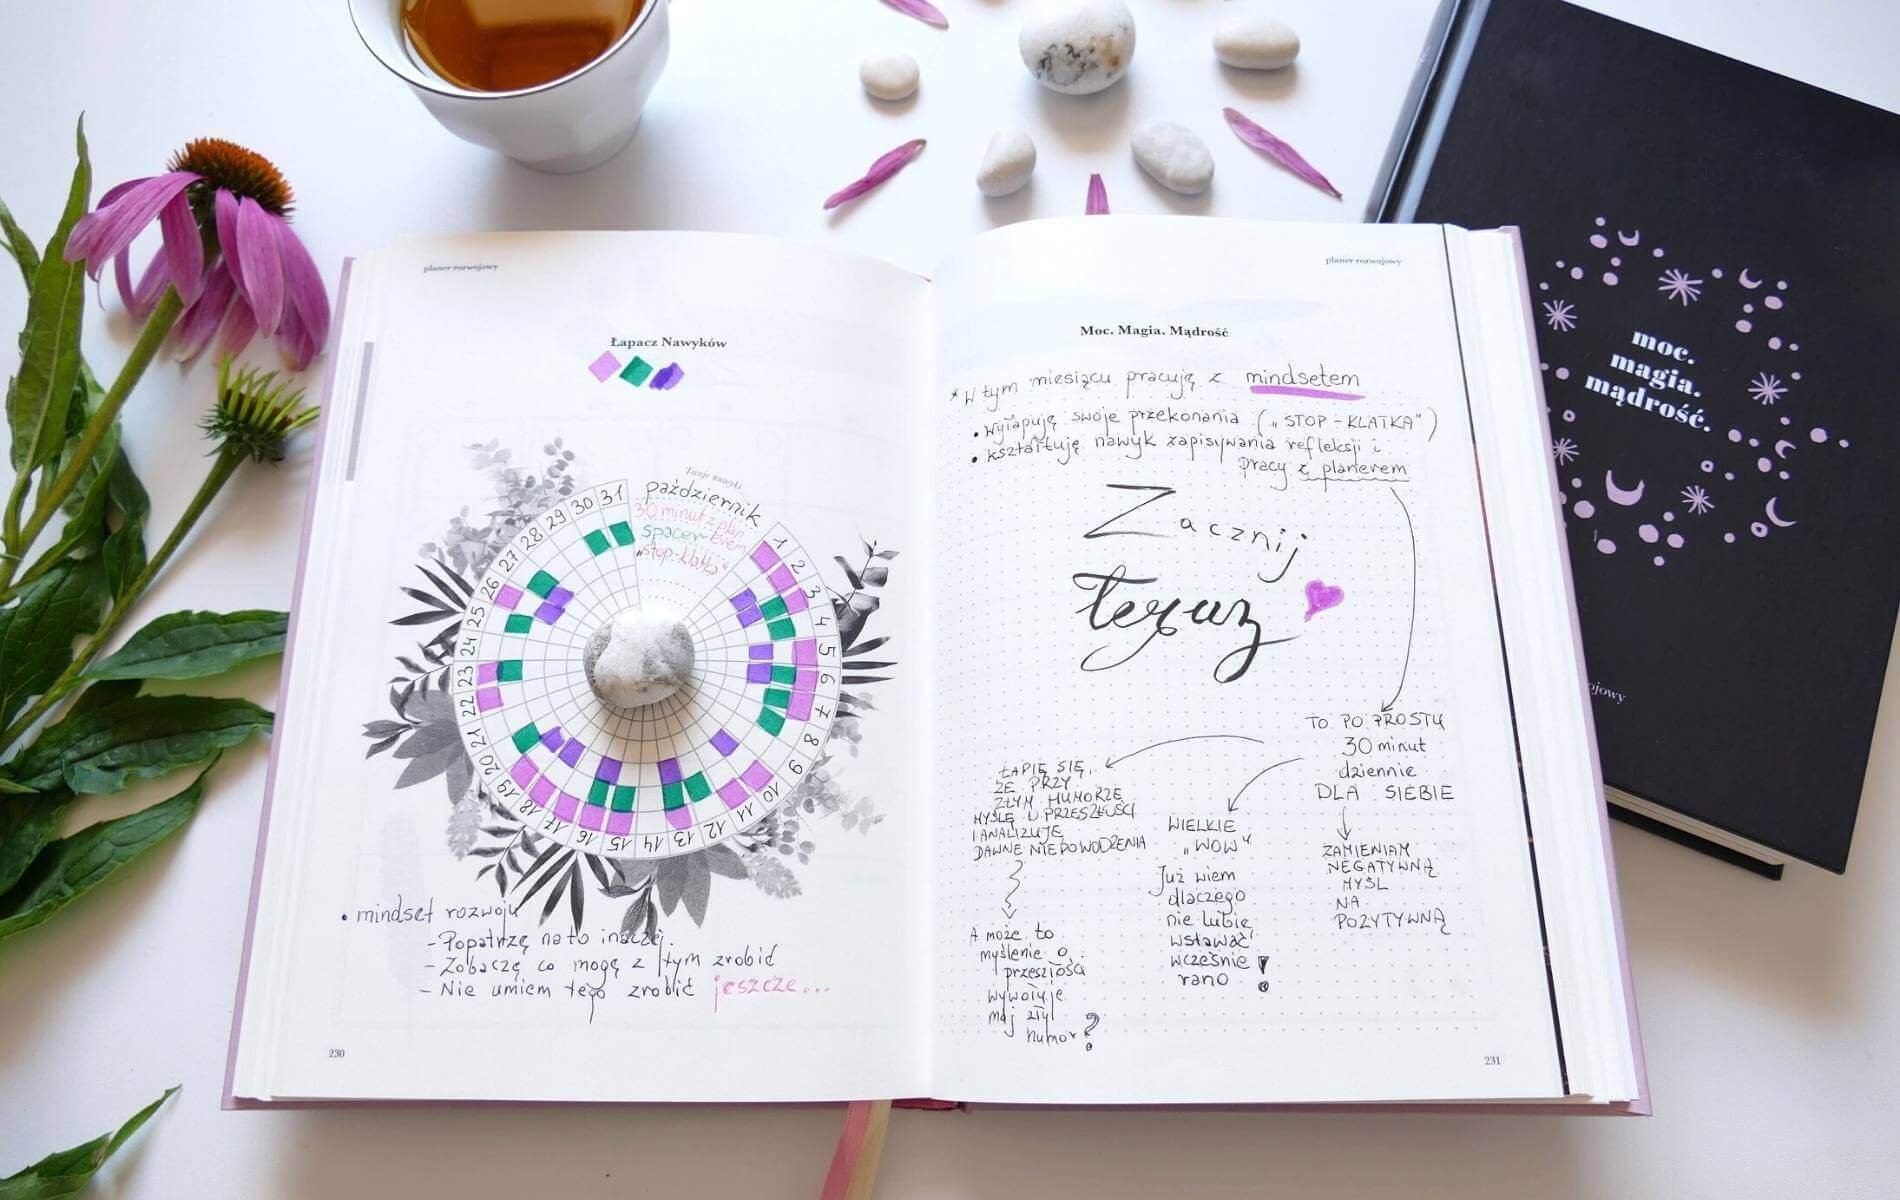 planer rozwojowy
Łapacz Nawyków
Twoje nawyki
październik
30 minut z plan
erem
spacer
"stop-klatka"
1
2
3
4
5
6
7
8
9
10
11
12
13
14
15
16
17
18
19
20
21
22
23
24
25
26
27
28
29
30
31
• mindset rozwoju
- Popatrzę na to inaczej.
- Zobaczę co mogę z tym zrobić
- Nie umiem tego zrobić jeszcze...
230
planer rozwojowy
Moc. Magia. Mądrość
* W tym miesiącu pracuję z mindsetem
• wyłapuję swoje przekonania („STOP-KLATKA")
• kształtuję nawyk zapisywania refleksji i
pracy z planerem
Zacznij
teraz
TO PO PROSTU
30 minut
dziennie
DLA SIEBIE
ŁAPIĘ SIĘ,
ŻE PRZY
ZŁYM HUMORZE
MYŚLĘ O PRZESZŁOŚCI
I ANALIZUJĘ
DAWNE NIEPOWODZENIA
A może to
myślenie o
przeszłości
wywołuje
mój zły
humor?
WIELKIE
„WOW"
Już wiem
dlaczego
nie lubię
wstawać
wcześnie
rano !
ZAMIENIAM
NEGATYWNĄ
MYŚL
NA
POZYTYWNĄ
231
moc.
magia.
mądrość.